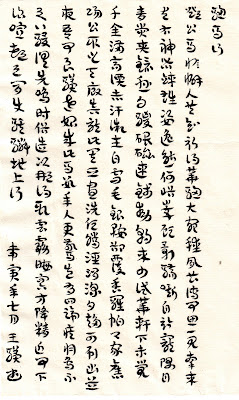 驄馬行
鄧公馬癖人共知初得花驄大宛種夙昔傳聞思一見牽來
左右神皆竦雄姿逸態何崷崒顧影驕嘶自矜寵隅目
青熒夾鏡懸肉駿碨礌連錢動朝來少試華軒下未覺
千金滿高價赤汗微生白雪毛銀鞍卻覆香羅帕卿家舊
賜公取之天廄真龍此其亞晝洗須騰涇渭深夕趨可刷幽并
夜吾聞良驥老始成此馬數年人更驚豈有四蹄疾於鳥不
與八駿俱先鳴時俗造次那得致雲霧晦冥方降精近聞下
詔喧都邑肯使騏驎地上行
七月王